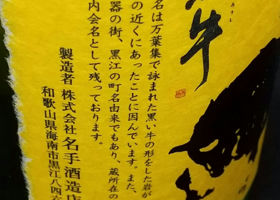 牛
名は万葉集で詠まれた黒い牛の形をした岩が
の近くにあったことに因んでいます。また、
器の街、黒江の町名由来でもあり、蔵所在の
内会名として残っております。
製造者 株式会社名手酒造店
和歌山県海南市黒江八四六